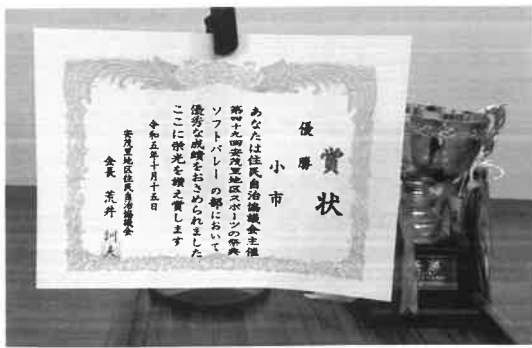 賞状
優勝
小市
あなたは住民自治協議会主催
第四十九回安茂里地区スポーツの祭典
ソフトバレーの部において
優秀な成績をおさめられました
ここに栄光を讃え賞します
令和五年十月十五日
安茂里地区住民自治協議会
会長 荒井